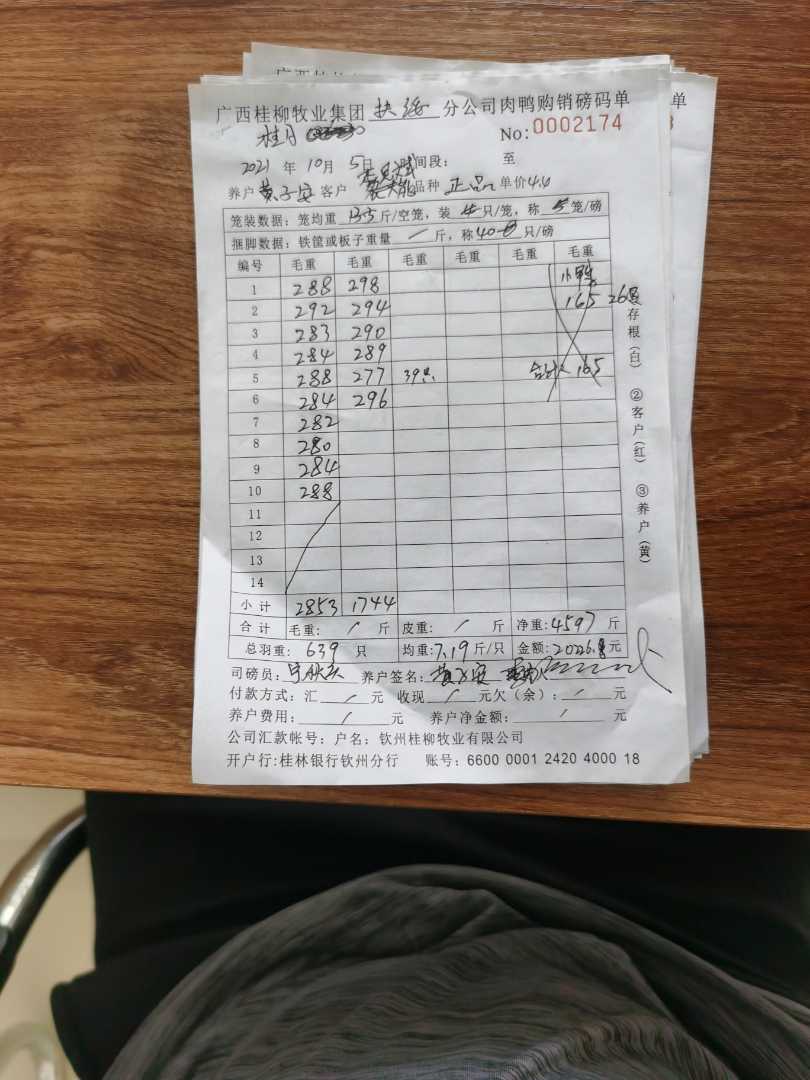 广西桂柳牧业集团 分公司肉鸭购销磅码单
No:0002174
2021 年 10 月 5日 时间段: 至
养户 黄子安 客户 品种 正品 单价4.6
笼装数据:笼均重 13.5 斤/空笼,装 4 只/笼,称 5 笼/磅
捆脚数据:铁筐或板子重量 / 斤,称40 只/磅
编号 毛重 毛重 毛重 毛重 毛重 毛重
1 288 298 小鸭
2 292 294 165 26只
3 283 290
4 284 289
5 288 277 39只 合计 165
6 284 296
7 282
8 280
9 284
10 288
11
12
13
14
小计 2853 1744
合计 毛重: / 斤 皮重: / 斤 净重:4597 斤
总羽重: 639 只 均重:7.19斤/只 金额: 元
司磅员: 养户签名: 黄子安
付款方式:汇 / 元 收现 / 元欠(余): / 元
养户费用: / 元 养户净金额: / 元
公司汇款帐号:户名:钦州桂柳牧业有限公司
开户行:桂林银行钦州分行 账号:6600 0001 2420 4000 18
存根(白)
②客户(红)
③养户(黄)
单